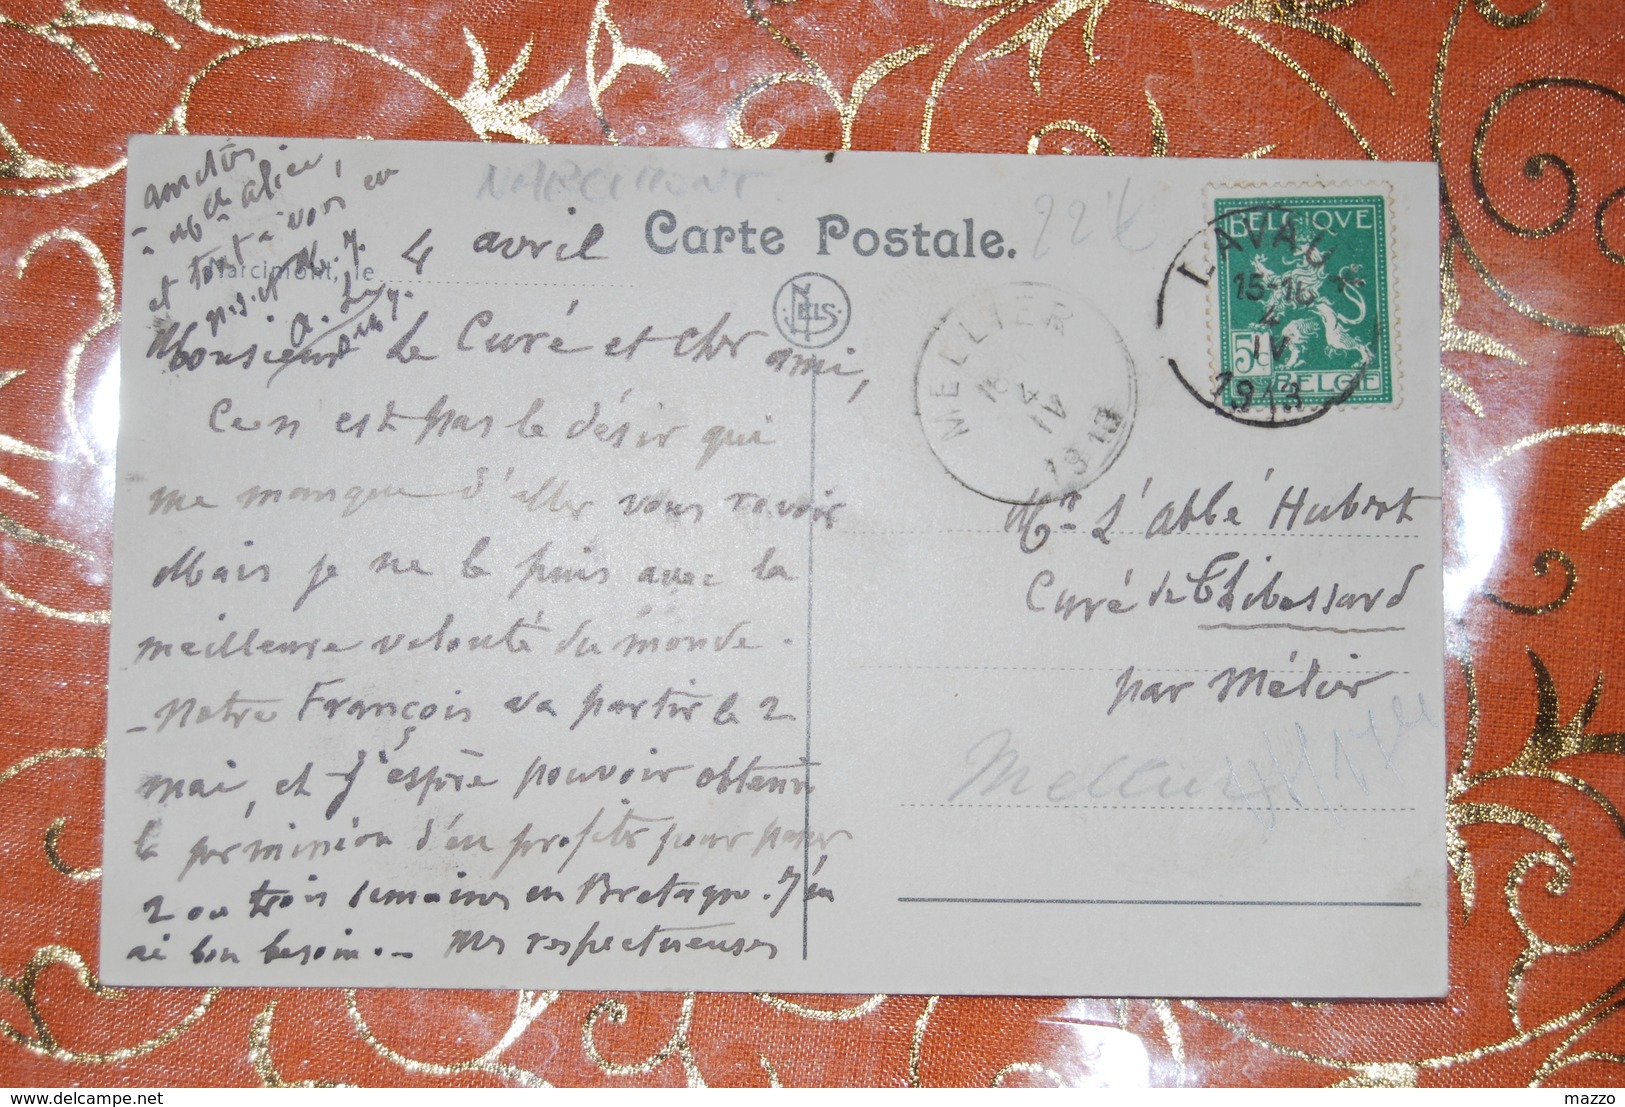 NARCIMONT
Carte Postale.
Narcimont, le 4 avril
NELS
Monsieur le Curé et cher ami,
Ce n'est pas le désir qui
me manque d'aller vous revoir
Mais je ne le puis avec la
meilleure volonté du monde.
- Notre François va partir le 2
mai, et j'espère pouvoir obtenir
la permission d'en profiter pour passer
2 ou trois semaines en Bretagne. J'en
ai bon besoin. - Mes respectueuses
amitiés
et tout à vous en
BELGIQUE
5c
BELGIE
LAVAUX
15-16
4
IV
1913
MELLIER
4
IV
1913
Mr. L'abbé Hubert
Curé de Thibessard
par Mélier
Mellier
delcampe.net
mazzo